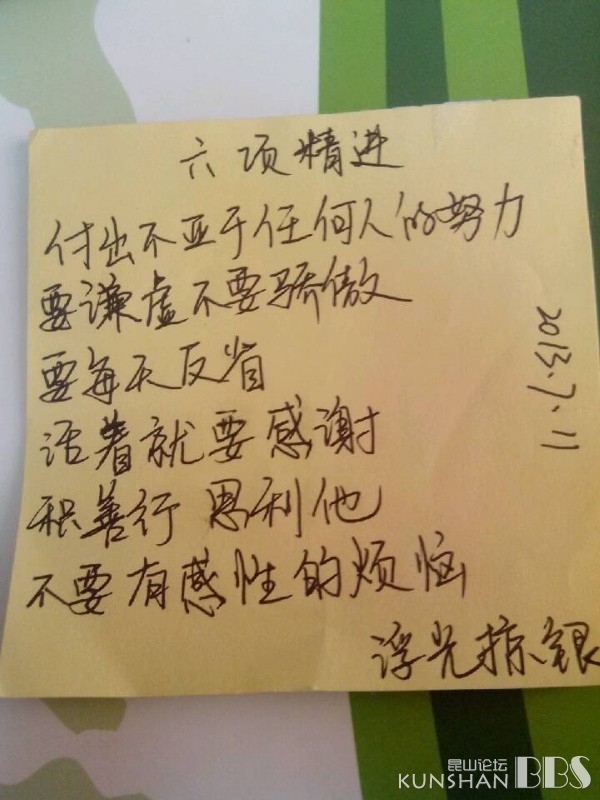 六项精进
付出不亚于任何人的努力
要谦虚不要骄傲
要每天反省
活着就要感谢
积善行 思利他
不要有感性的烦恼
浮光掠银
2013.7.11
昆山论坛
KUNSHAN BBS